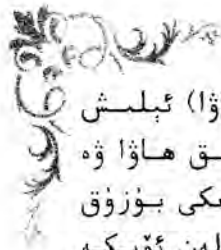 ۋا) ئېلىش
ـق ھاۋا ۋە
ـكى بۇزۇق